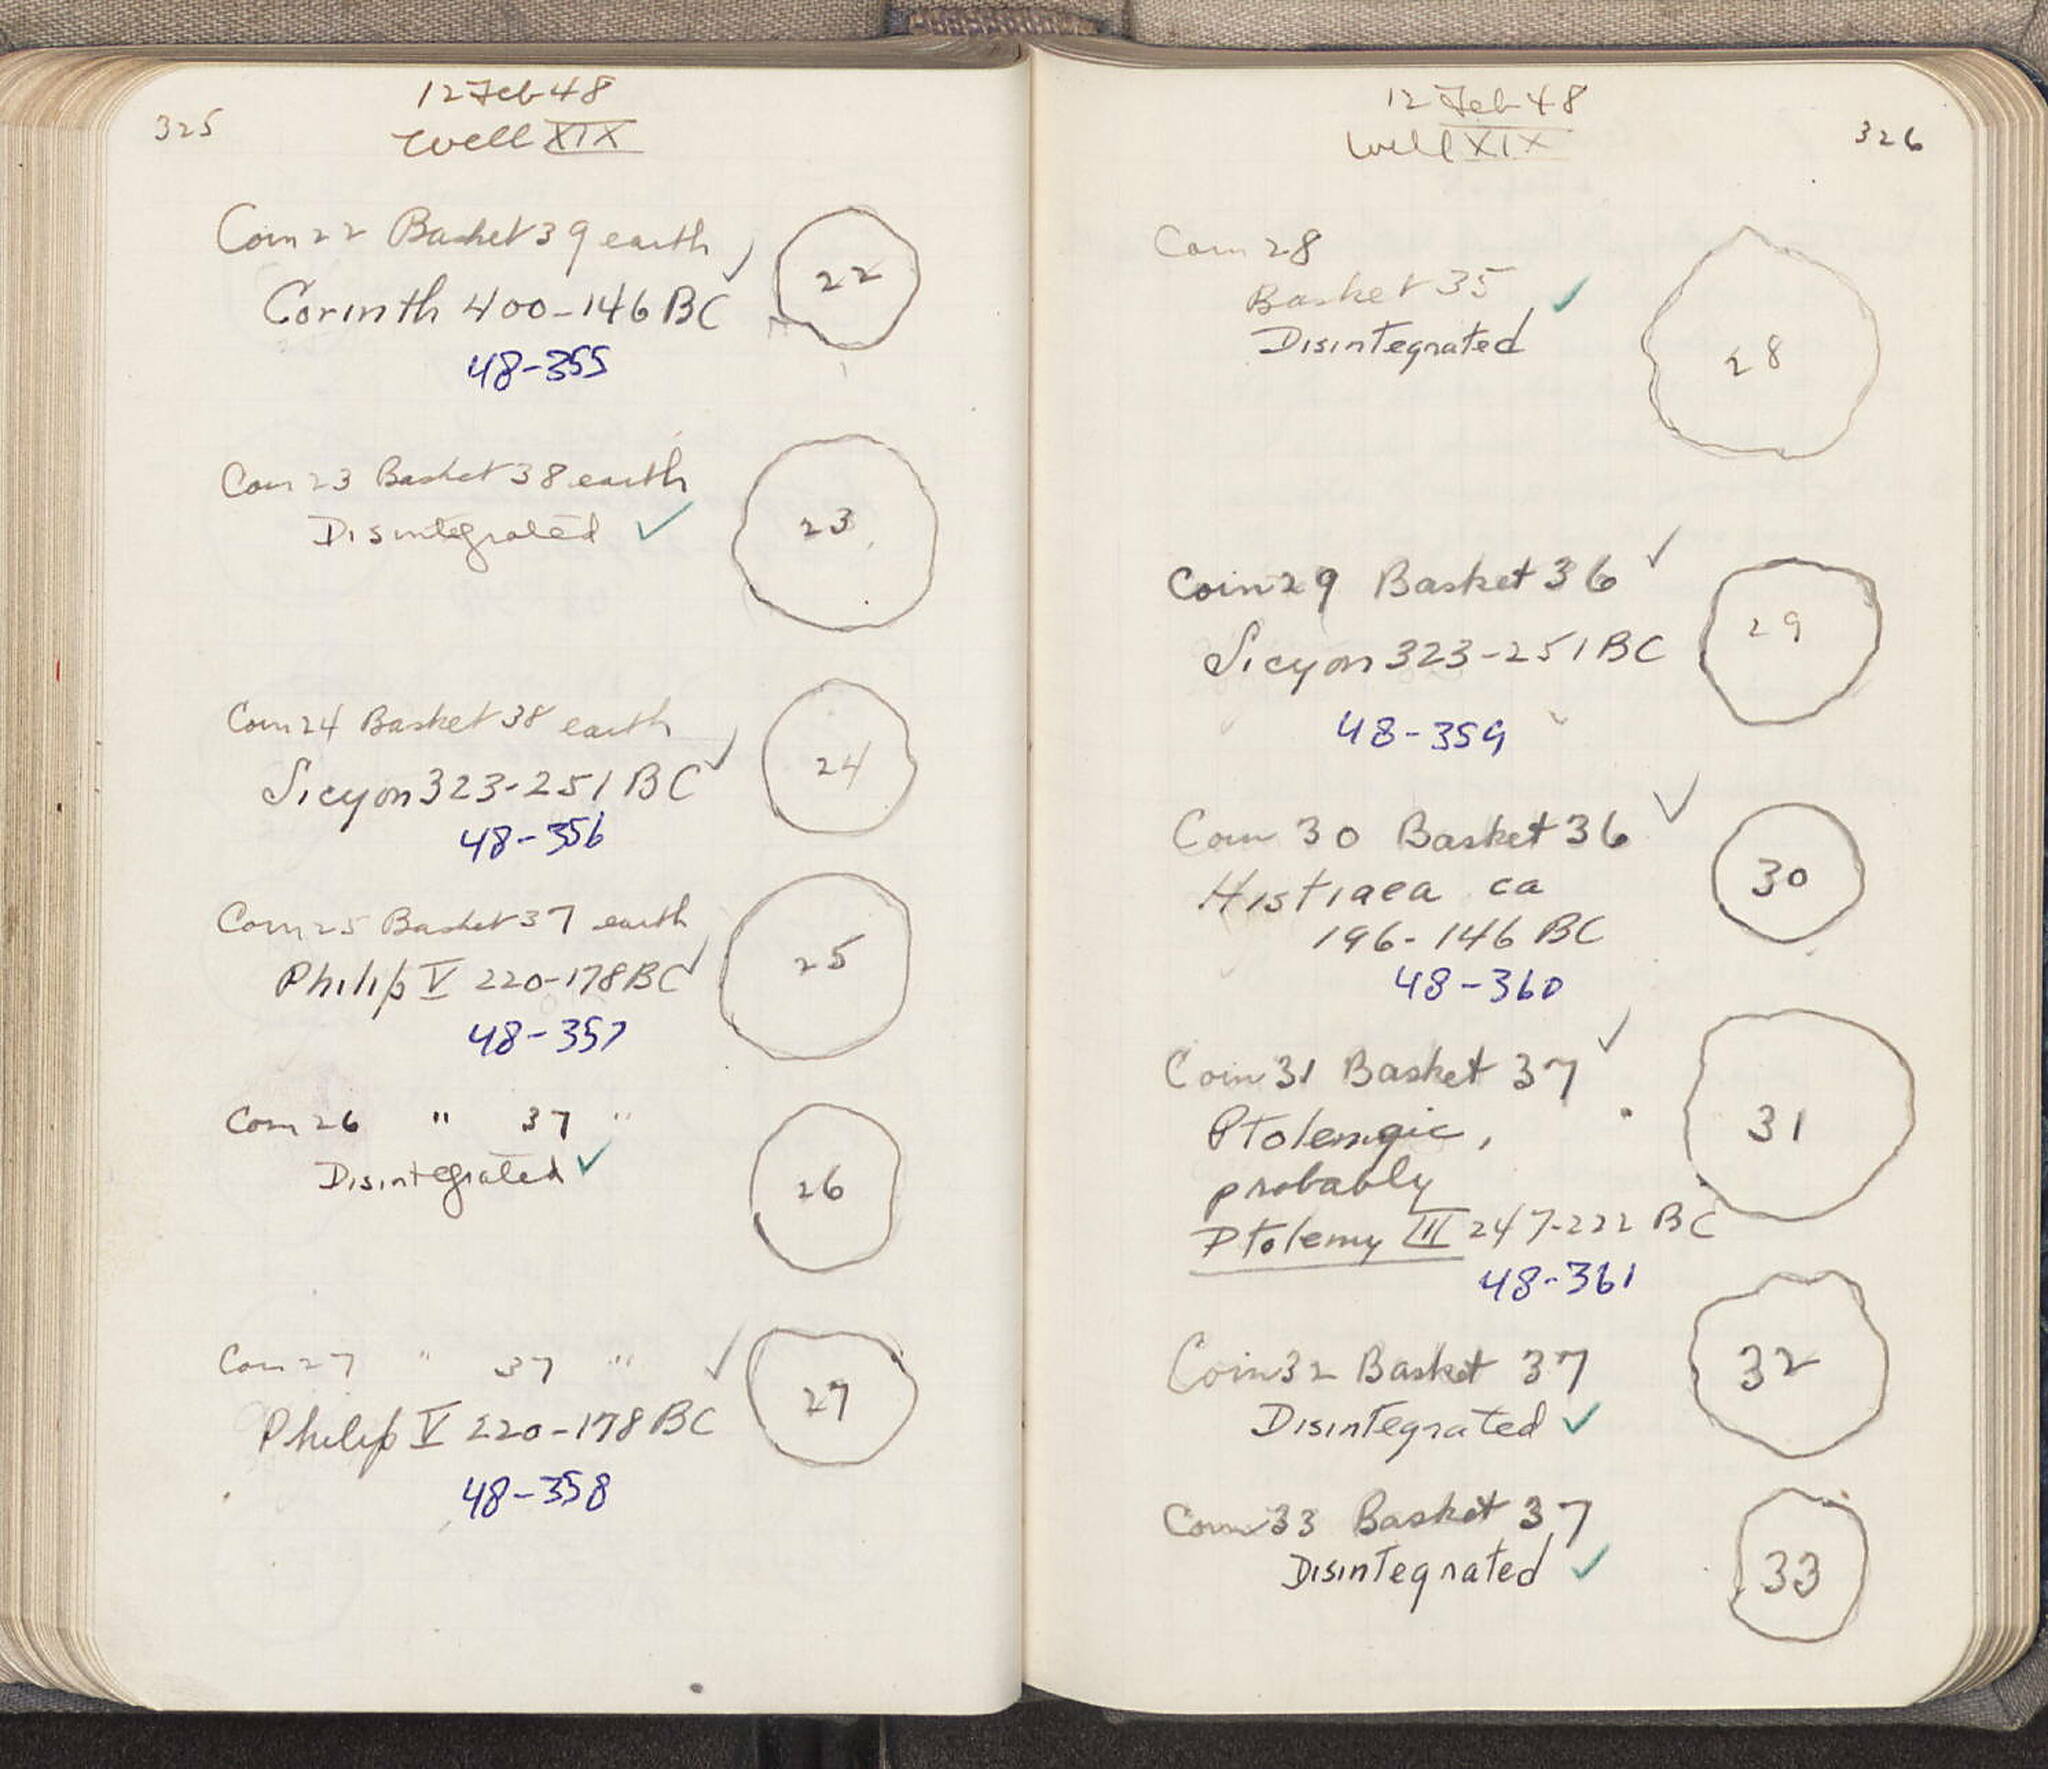 325
12 Feb 48
Well XIX
Coin 22 Basket 39 earth ✓
22
Corinth 400-146 BC
48-355
Coin 23 Basket 38 earth
Disintegrated ✓
23
Coin 24 Basket 38 earth ✓
24
Sicyon 323-251 BC
48-356
Coin 25 Basket 37 earth
25
Philip V 220-178 BC ✓
48-357
Coin 26 " 37 "
Disintegrated ✓
26
Coin 27 " 37 " ✓
27
Philip V 220-178 BC
48-358
12 Feb 48
326
Well XIX
Coin 28
Basket 35 ✓
Disintegrated
28
Coin 29 Basket 36 ✓
29
Sicyon 323-251 BC
48-359
Coin 30 Basket 36 ✓
30
Histiaea ca
196-146 BC
48-360
Coin 31 Basket 37 ✓
31
Ptolemaic,
probably
Ptolemy III 247-222 BC
48-361
Coin 32 Basket 37
32
Disintegrated ✓
Coin 33 Basket 37
Disintegrated ✓
33